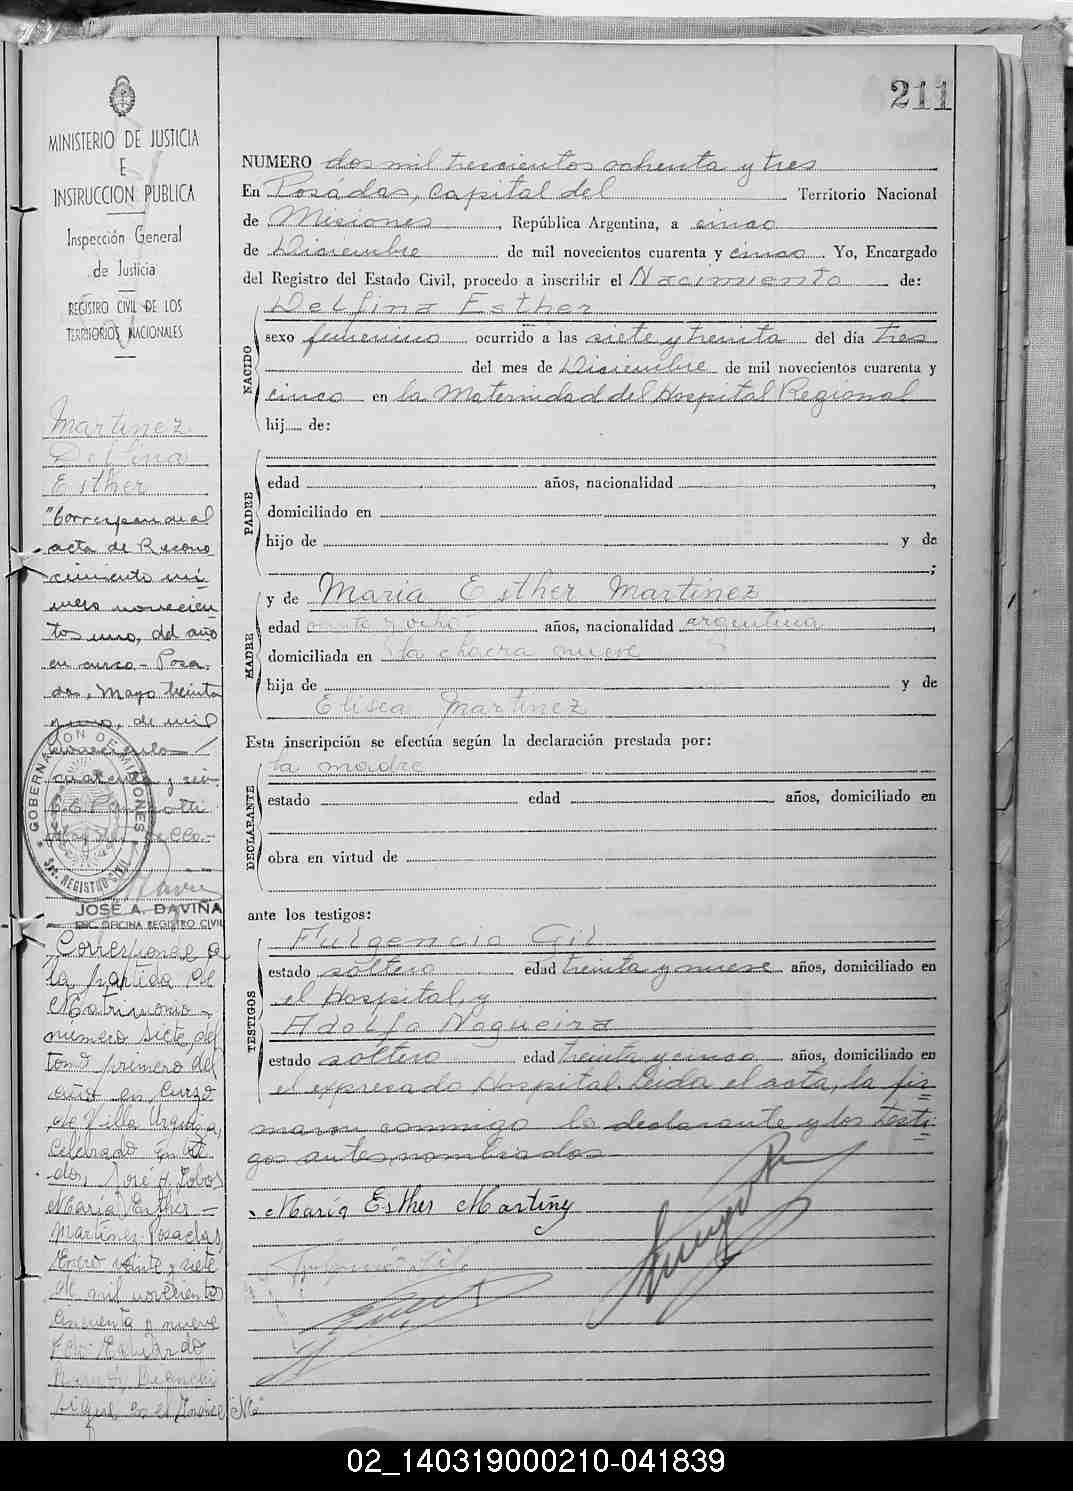 211
MINISTERIO DE JUSTICIA
E
INSTRUCCION PUBLICA
Inspección General
de Justicia
REGISTRO CIVIL DE LOS
TERRITORIOS NACIONALES
Martinez
Delfina
Esther
"Corresponde al
acta de Recono
cimiento nú
mero novecien
tos uno, del año
en curso - Posa-
das, Mayo treinta
y uno, de mil
novecientos
cuarenta y
GOBERNACION DE MISIONES
Sec. REGISTRO CIVIL
JOSÉ A. DAVIÑA
ENC. OFICINA REGISTRO CIVIL
Corresponde a
la partida de
Matrimonio
número siete del
tomo primero del
año en curso
de Villa Urquiza,
celebrado entre
do, José A. Lobos
María Esther
Martínez Posadas,
Enero veinte y siete
de mil novecientos
cincuenta y nueve
Fdo: Eduardo
Ramón Bianchi
Sigue en el Indice "M"
NUMERO dos mil trescientos ochenta y tres
En Posadas, capital del Territorio Nacional
de Misiones, República Argentina, a cinco
de Diciembre de mil novecientos cuarenta y cinco. Yo, Encargado
del Registro del Estado Civil, procedo a inscribir el Nacimiento de:
NACIDO
Delfina Esther
sexo femenino ocurrido a las siete y treinta del día tres
del mes de Diciembre de mil novecientos cuarenta y
cinco en la Maternidad del Hospital Regional
hij de:
PADRE
edad años, nacionalidad ,
domiciliado en
hijo de y de
;
MADRE
y de Maria Esther Martinez
edad veinte y ocho años, nacionalidad argentina,
domiciliada en la chacra nueve
hija de y de
Elisea Martinez
Esta inscripción se efectúa según la declaración prestada por:
DECLARANTE
la madre
estado edad años, domiciliado en
obra en virtud de
ante los testigos:
TESTIGOS
Fulgencio Gil
estado soltero edad treinta y nueve años, domiciliado en
el Hospital, y
Adolfo Nogueira
estado soltero edad treinta y cinco años, domiciliado en
el expresado Hospital. Leida el acta, la fir=
maron conmigo la declarante y los testi=
gos antes nombrados
María Esther Martínez
02_140319000210-041839